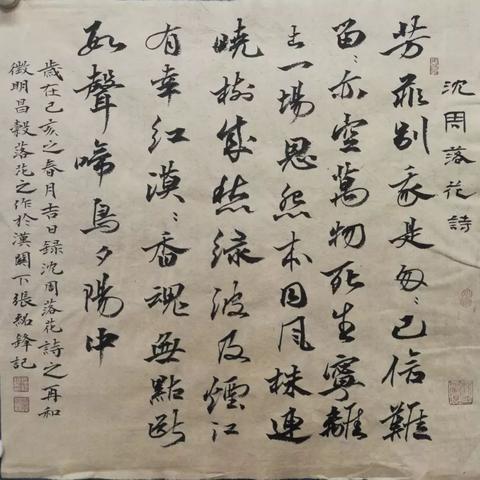 沈周落花詩
芳菲别我是匆々已信難
留々亦空萬物死生寧離
土一場恩怨本同風株連
曉樹成愁綠波及煙江
有幸紅漠々香魂無點斷
數聲啼鳥夕陽中
歲在己亥之春月吉日録沈周落花詩之再和
徵明昌穀落花之作於漢關下張紹鋒記